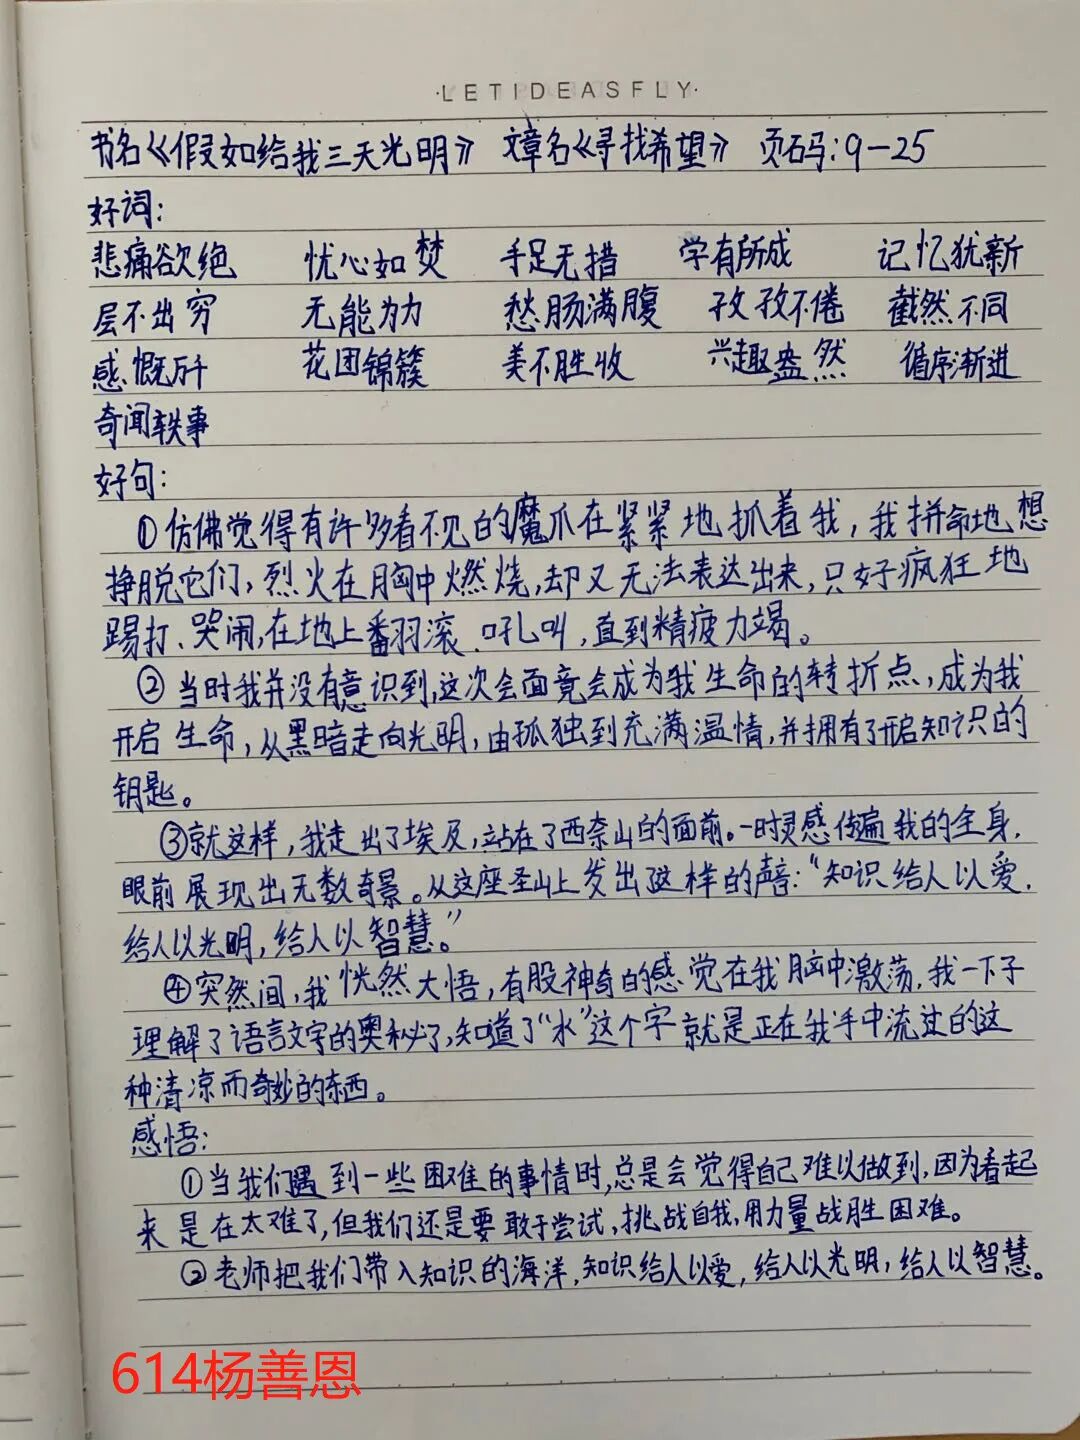 ·LETIDEASFLY·
书名《假如给我三天光明》 文章名《寻找希望》 页码：9—25
好词：
悲痛欲绝 忧心如焚 手足无措 学有所成 记忆犹新
层不出穷 无能为力 愁肠满腹 孜孜不倦 截然不同
感慨万千 花团锦簇 美不胜收 兴趣盎然 循序渐进
奇闻轶事
好句：
①仿佛觉得有许多看不见的魔爪在紧紧地抓着我，我拼命地想
挣脱它们，烈火在胸中燃烧，却又无法表达出来，只好疯狂地
踢打、哭闹，在地上翻滚、吼叫，直到精疲力竭。
②当时我并没有意识到，这次会面竟会成为我生命的转折点，成为我
开启生命，从黑暗走向光明，由孤独到充满温情，并拥有了开启知识的
钥匙。
③就这样，我走出了埃及，站在了西奈山的面前。一时灵感传遍我的全身，
眼前展现出无数奇景。从这座圣山上发出了这样的声音：“知识给人以爱，
给人以光明，给人以智慧。”
④突然间，我恍然大悟，有股神奇的感觉在我脑中激荡，我一下子
理解了语言文字的奥秘了，知道了“水”这个字就是正在我手中流过的这
种清凉而奇妙的东西。
感悟：
①当我们遇到一些困难的事情时，总是会觉得自己难以做到，因为看起
来是在太难了，但我们还是要敢于尝试，挑战自我，用力量战胜困难。
②老师把我们带入知识的海洋，知识给人以爱，给人以光明，给人以智慧。
614杨善恩